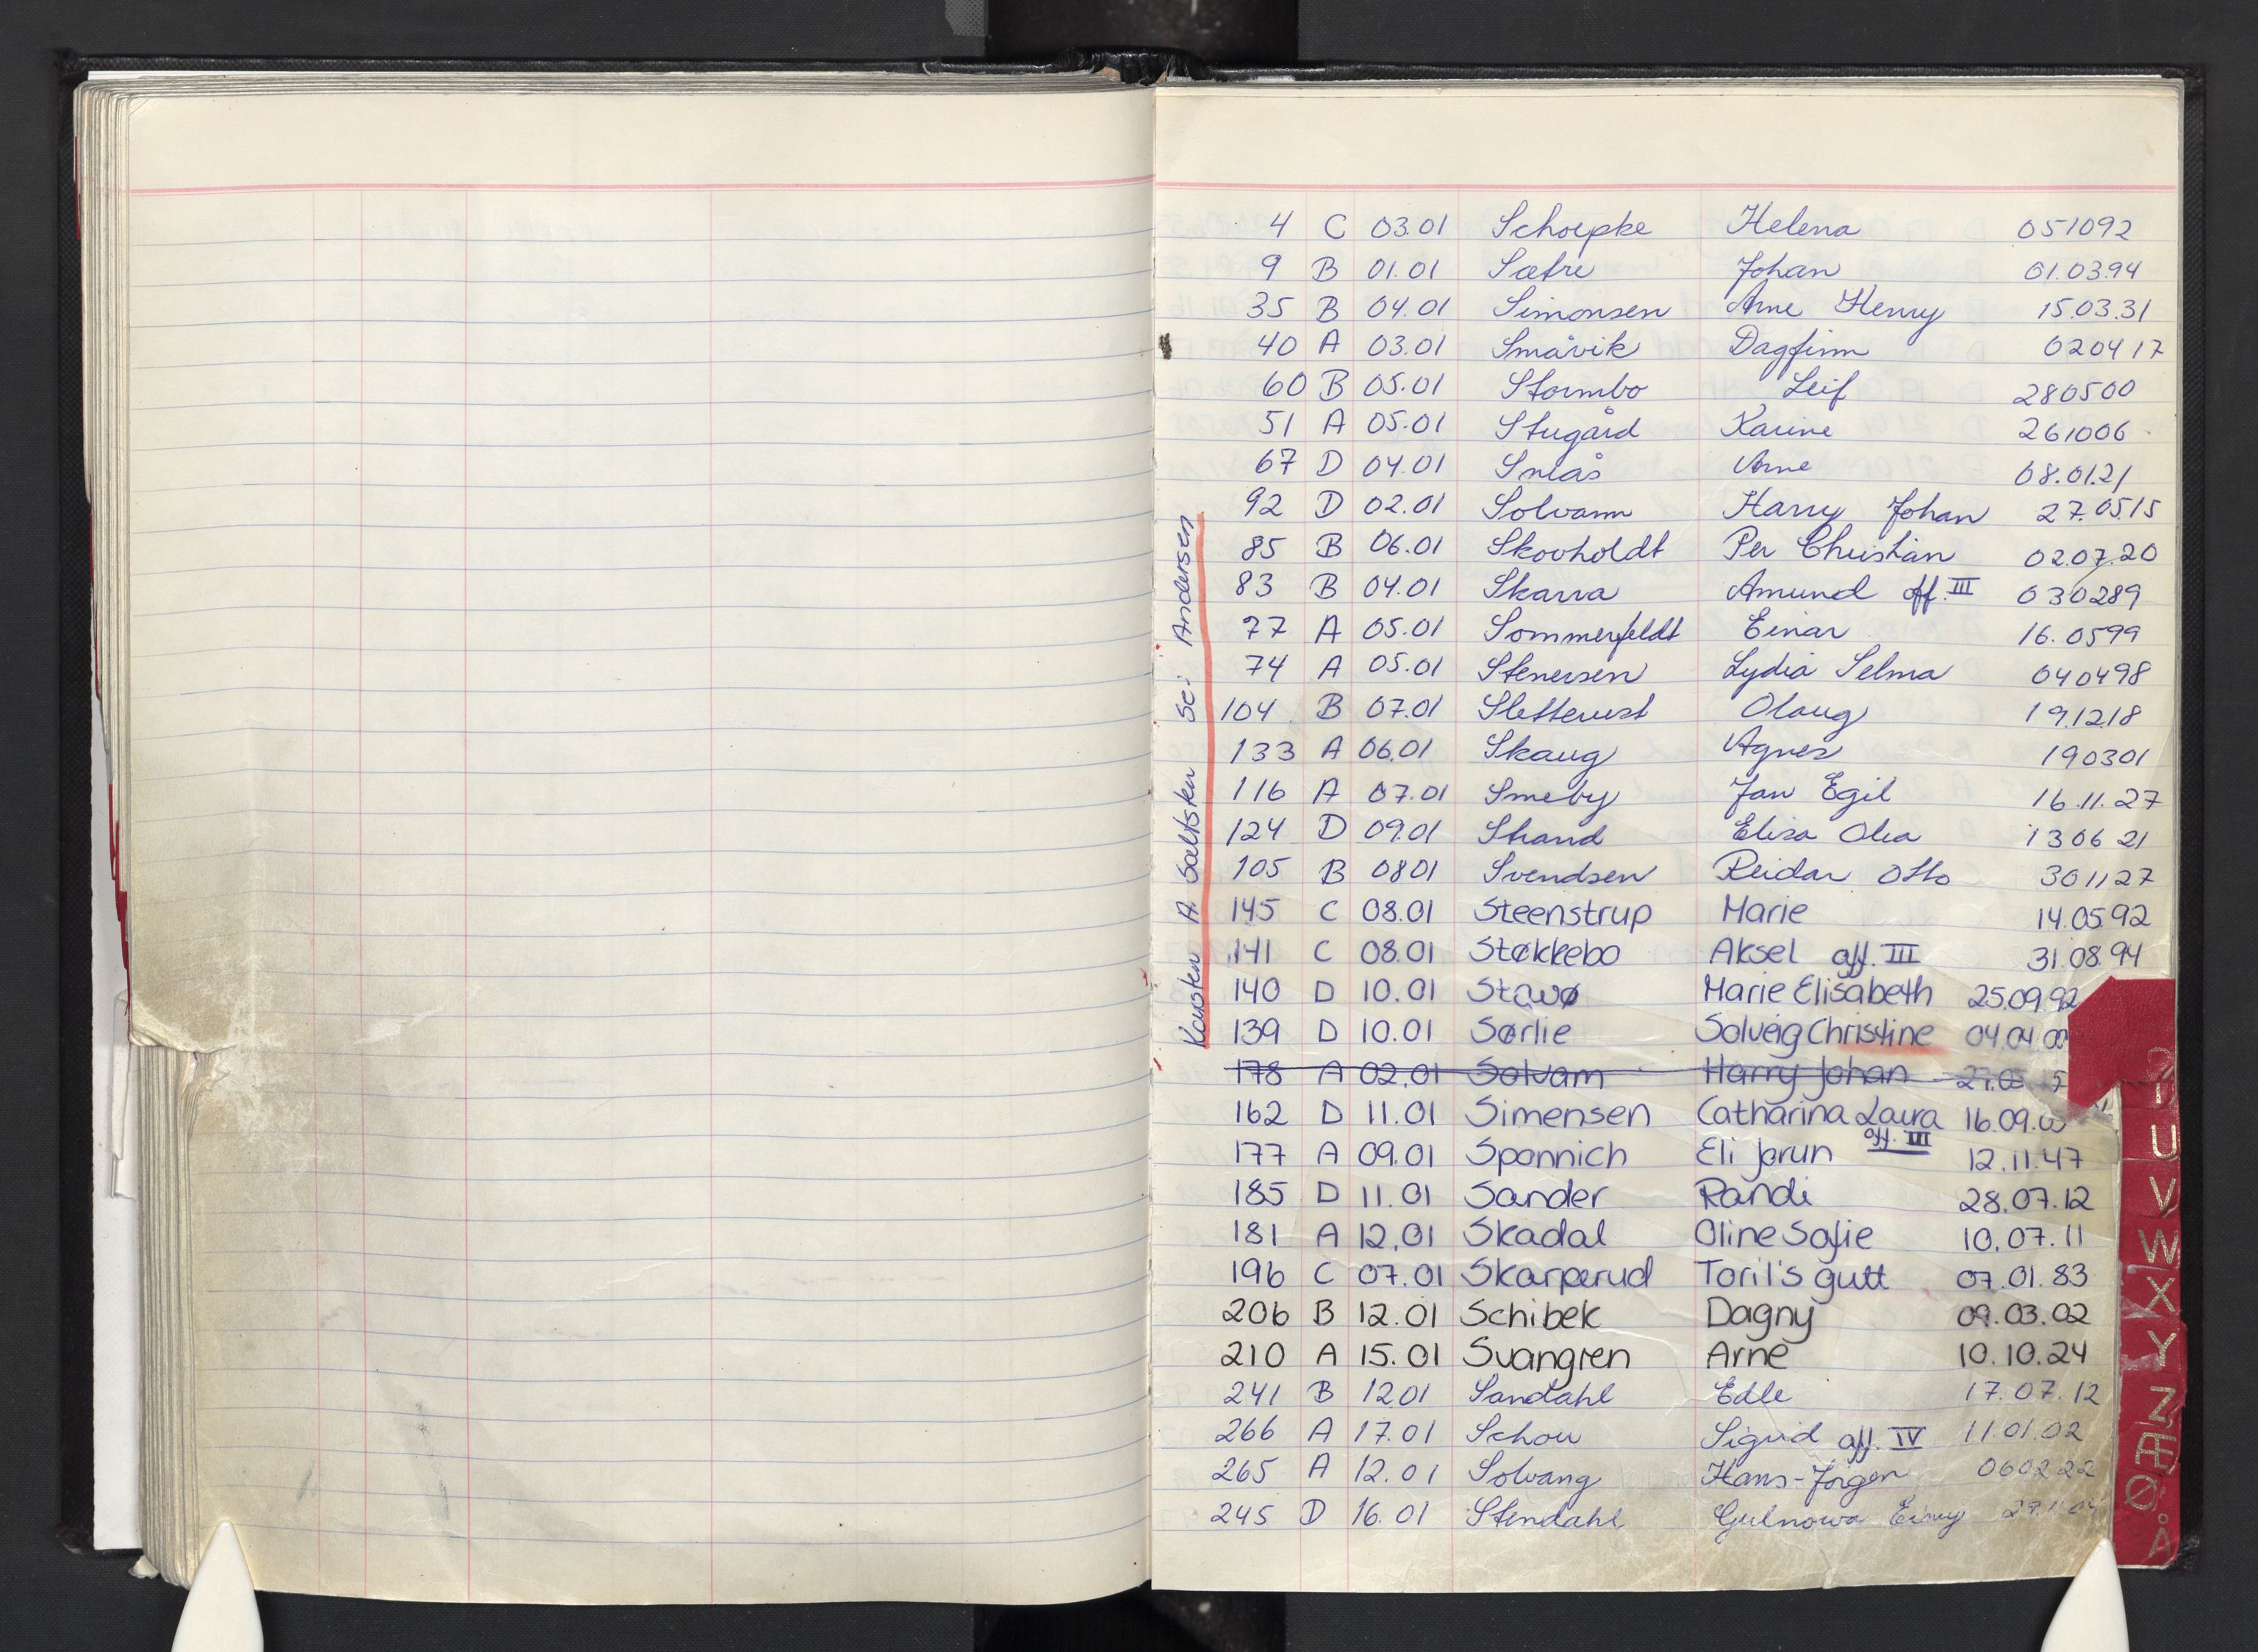 4 C 03.01 Schoepke Helena 051092
9 B 01.01 Sætre Johan 01.03.94
35 B 04.01 Simonsen Arne Henry 15.03.31
40 A 03.01 Småvik Dagfinn 020417
60 B 05.01 Stormbo Leif 280500
51 A 05.01 Stugård Karine 261006
67 D 04.01 Snlås Arne 08.01.21
92 D 02.01 Solvann Harry Johan 27.05.15
85 B 06.01 Skovholdt Per Christian 02.07.20
83 B 04.01 Skarra Amund off. III 030289
77 A 05.01 Sommerfeldt Einar 16.0599
74 A 05.01 Stenersen Lydia Selma 040498
104 B 07.01 Sletterust Olaug 19.12.18
133 A 06.01 Skaug Agnes 190301
116 A 07.01 Smeby Jan Egil 16.11.27
124 D 09.01 Strand Elisa Olea 130621
105 B 0801 Svendsen Reidar Otto 301127
145 C 08.01 Steenstrup Marie 14.05.92
141 C 08.01 Støkkebo Aksel off. III 31.08.94
140 D 10.01 Stavø Marie Elisabeth 25.09.92
139 D 10.01 Sørlie Solveig Christine 04.04.00
178 A 02.01 Solvam Harry Johan 27.05.15
162 D 11.01 Simensen Catharina Laura 16.09.0
177 A 09.01 Spannich Eli Jorun off. III 12.11.47
185 D 11.01 Sander Randi 28.07.12
181 A 12.01 Skadal Oline Sofie 10.07.11
196 C 07.01 Skarperud Toril's gutt 07.01.83
206 B 12.01 Schibek Dagny 09.03.02
210 A 15.01 Svangren Arne 10.10.24
241 B 12.01 Sandahl Edle 17.07.12
266 A 17.01 Schou Sigrid off. IV 11.01.02
265 A 12.01 Solvang Hans-Jørgen 060222
245 D 16.01 Stendahl Gulnowa Eimy
Karsten A. Saltsken se: Andersen
U
V
W
X
Y
Z
Æ
Ø
Å